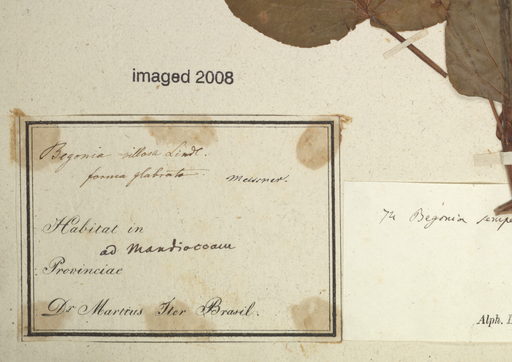 imaged 2008
Begonia villosa Lindl.
forma glabrata Meissner.
Habitat in
ad Mandioccam
Provinciae
Dr Martius Iter Brasil.
Begonia sempe
Alph. D